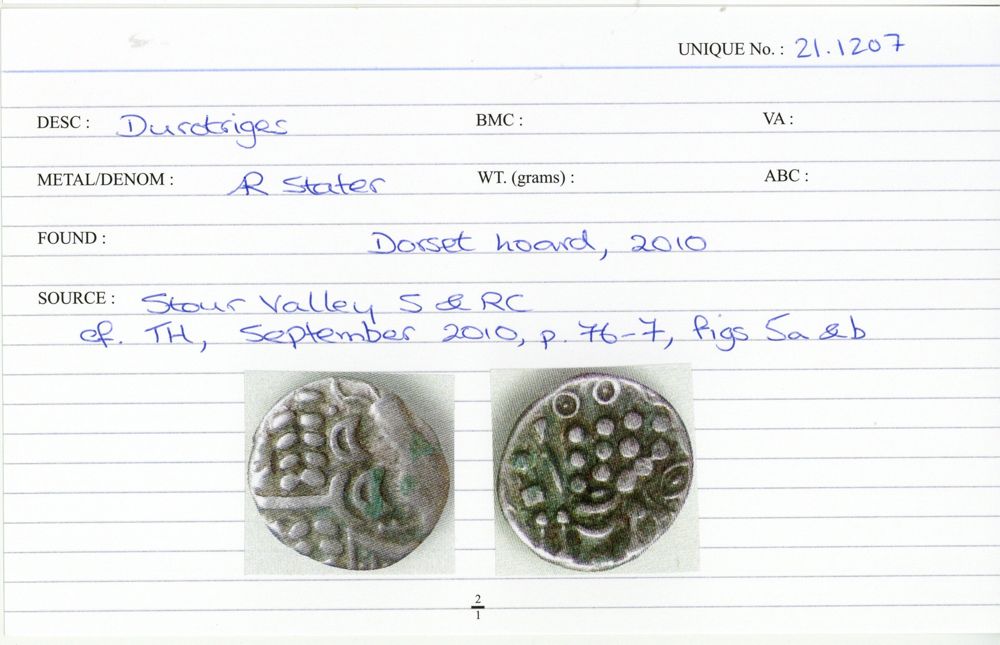 UNIQUE No. : 21.1207
DESC : Durotriges BMC : VA :
METAL/DENOM : AR Stater WT. (grams) : ABC :
FOUND : Dorset hoard, 2010
SOURCE : Stour Valley S & RC
cf. TH, September 2010, p. 76-7, figs 5a & b
2
1